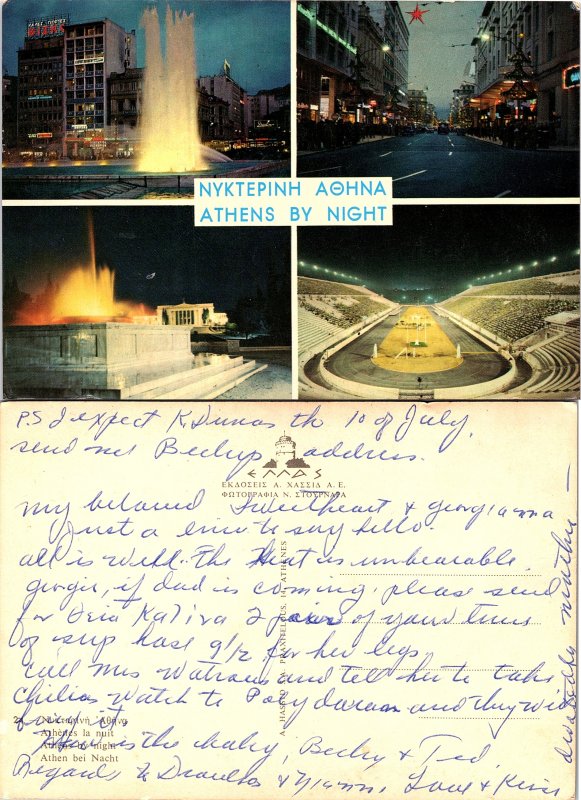 ΝΥΚΤΕΡΙΝΗ ΑΘΗΝΑ
ATHENS BY NIGHT
P.S I expect K. Dunas th 10 of July.
send me Beckys address.
ΕΛΛΑΣ
ΕΚΔΟΣΕΙΣ Α. ΧΑΣΣΙΔ Α.Ε.
ΦΩΤΟΓΡΑΦΙΑ Ν. ΣΤΟΥΡΝΑΡΑ
My beloved Sweetheart & georgianna
Just a line to say hello.
all is well. The Heat is unbearable.
georgie, if dad is coming please send
for Θeia Kaliva 2 pair of your
of sup hose 9 1/2 for her legs
call Mrs Watrous and tell her to take
Chilias watch to Poly daram and they will
fix it
How is the baby, Becky & Ted
Regards to & Yianni, Love & Kiss
A. HASSID PRAXITELOUS, 14, ATHENES
Νυκτερινή Αθήνα
Athènes la nuit
Athens by night
Athen bei Nacht